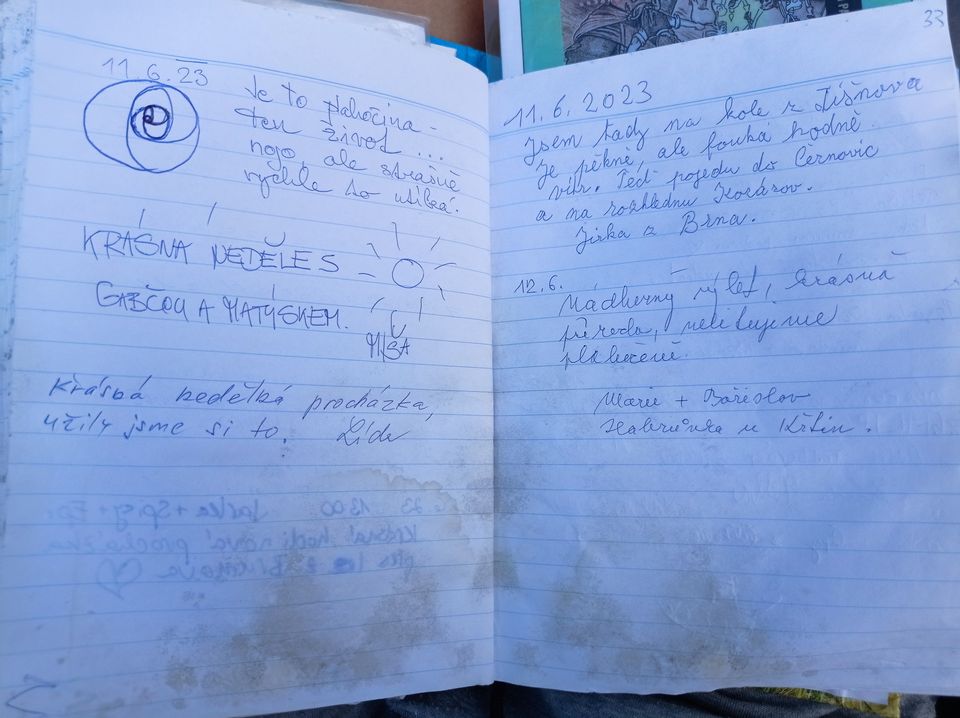 11.6.23
Je to nádočina -
ten život ...
nojo, ale strašně
rychle to utíká.
KRÁSNÁ NEDĚLE S
GABČOU A MATÝSKEM.
MÍŠA
Krásná nedělká procházka,
užily jsme si to. Lída
33
11.6.2023
Jsem tady na kole z Tišnova
Je pěkně, ale fouka hodně
vítr. Teď pojedu do Černovic
a na rozhlednu Kozárov.
Jirka z Brna.
12.6.
Nádherný výlet, krásná
příroda, nelitujeme
Marie + Bořislav
Habrůvka u Křtin.